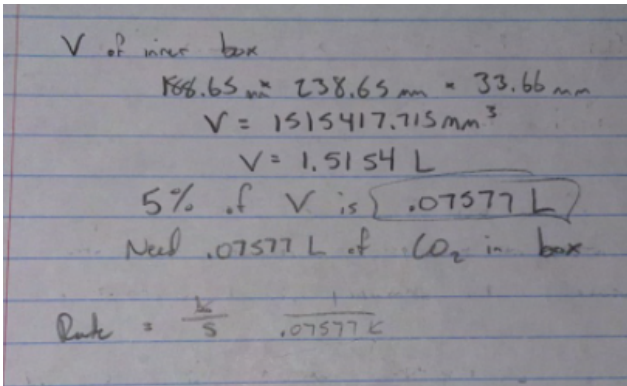 V of inner box
188.65 mm × 238.65 mm × 33.66 mm
V = 1515417.715 mm³
V = 1.5154 L
5% of V is .07577 L
Need .07577 L of CO₂ in box
Rate = L/S 1/.07577 L